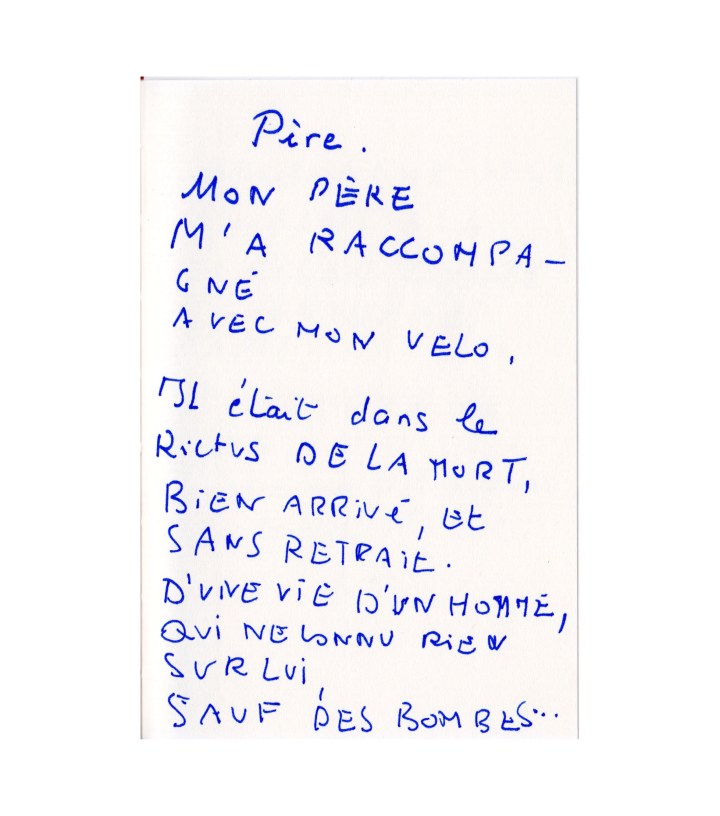 Père.
MON PÈRE
M'A RACCOMPA-
GNÉ
AVEC MON VELO,
IL était dans le
Rictus DE LA MORT,
BiEN ARRiVé, Et
SANS RETRAit.
D'VIVE ViE D'UN HOMME,
QUi NE CONNU RiEN
SUR LUi,
SAUF DES BOMBES...